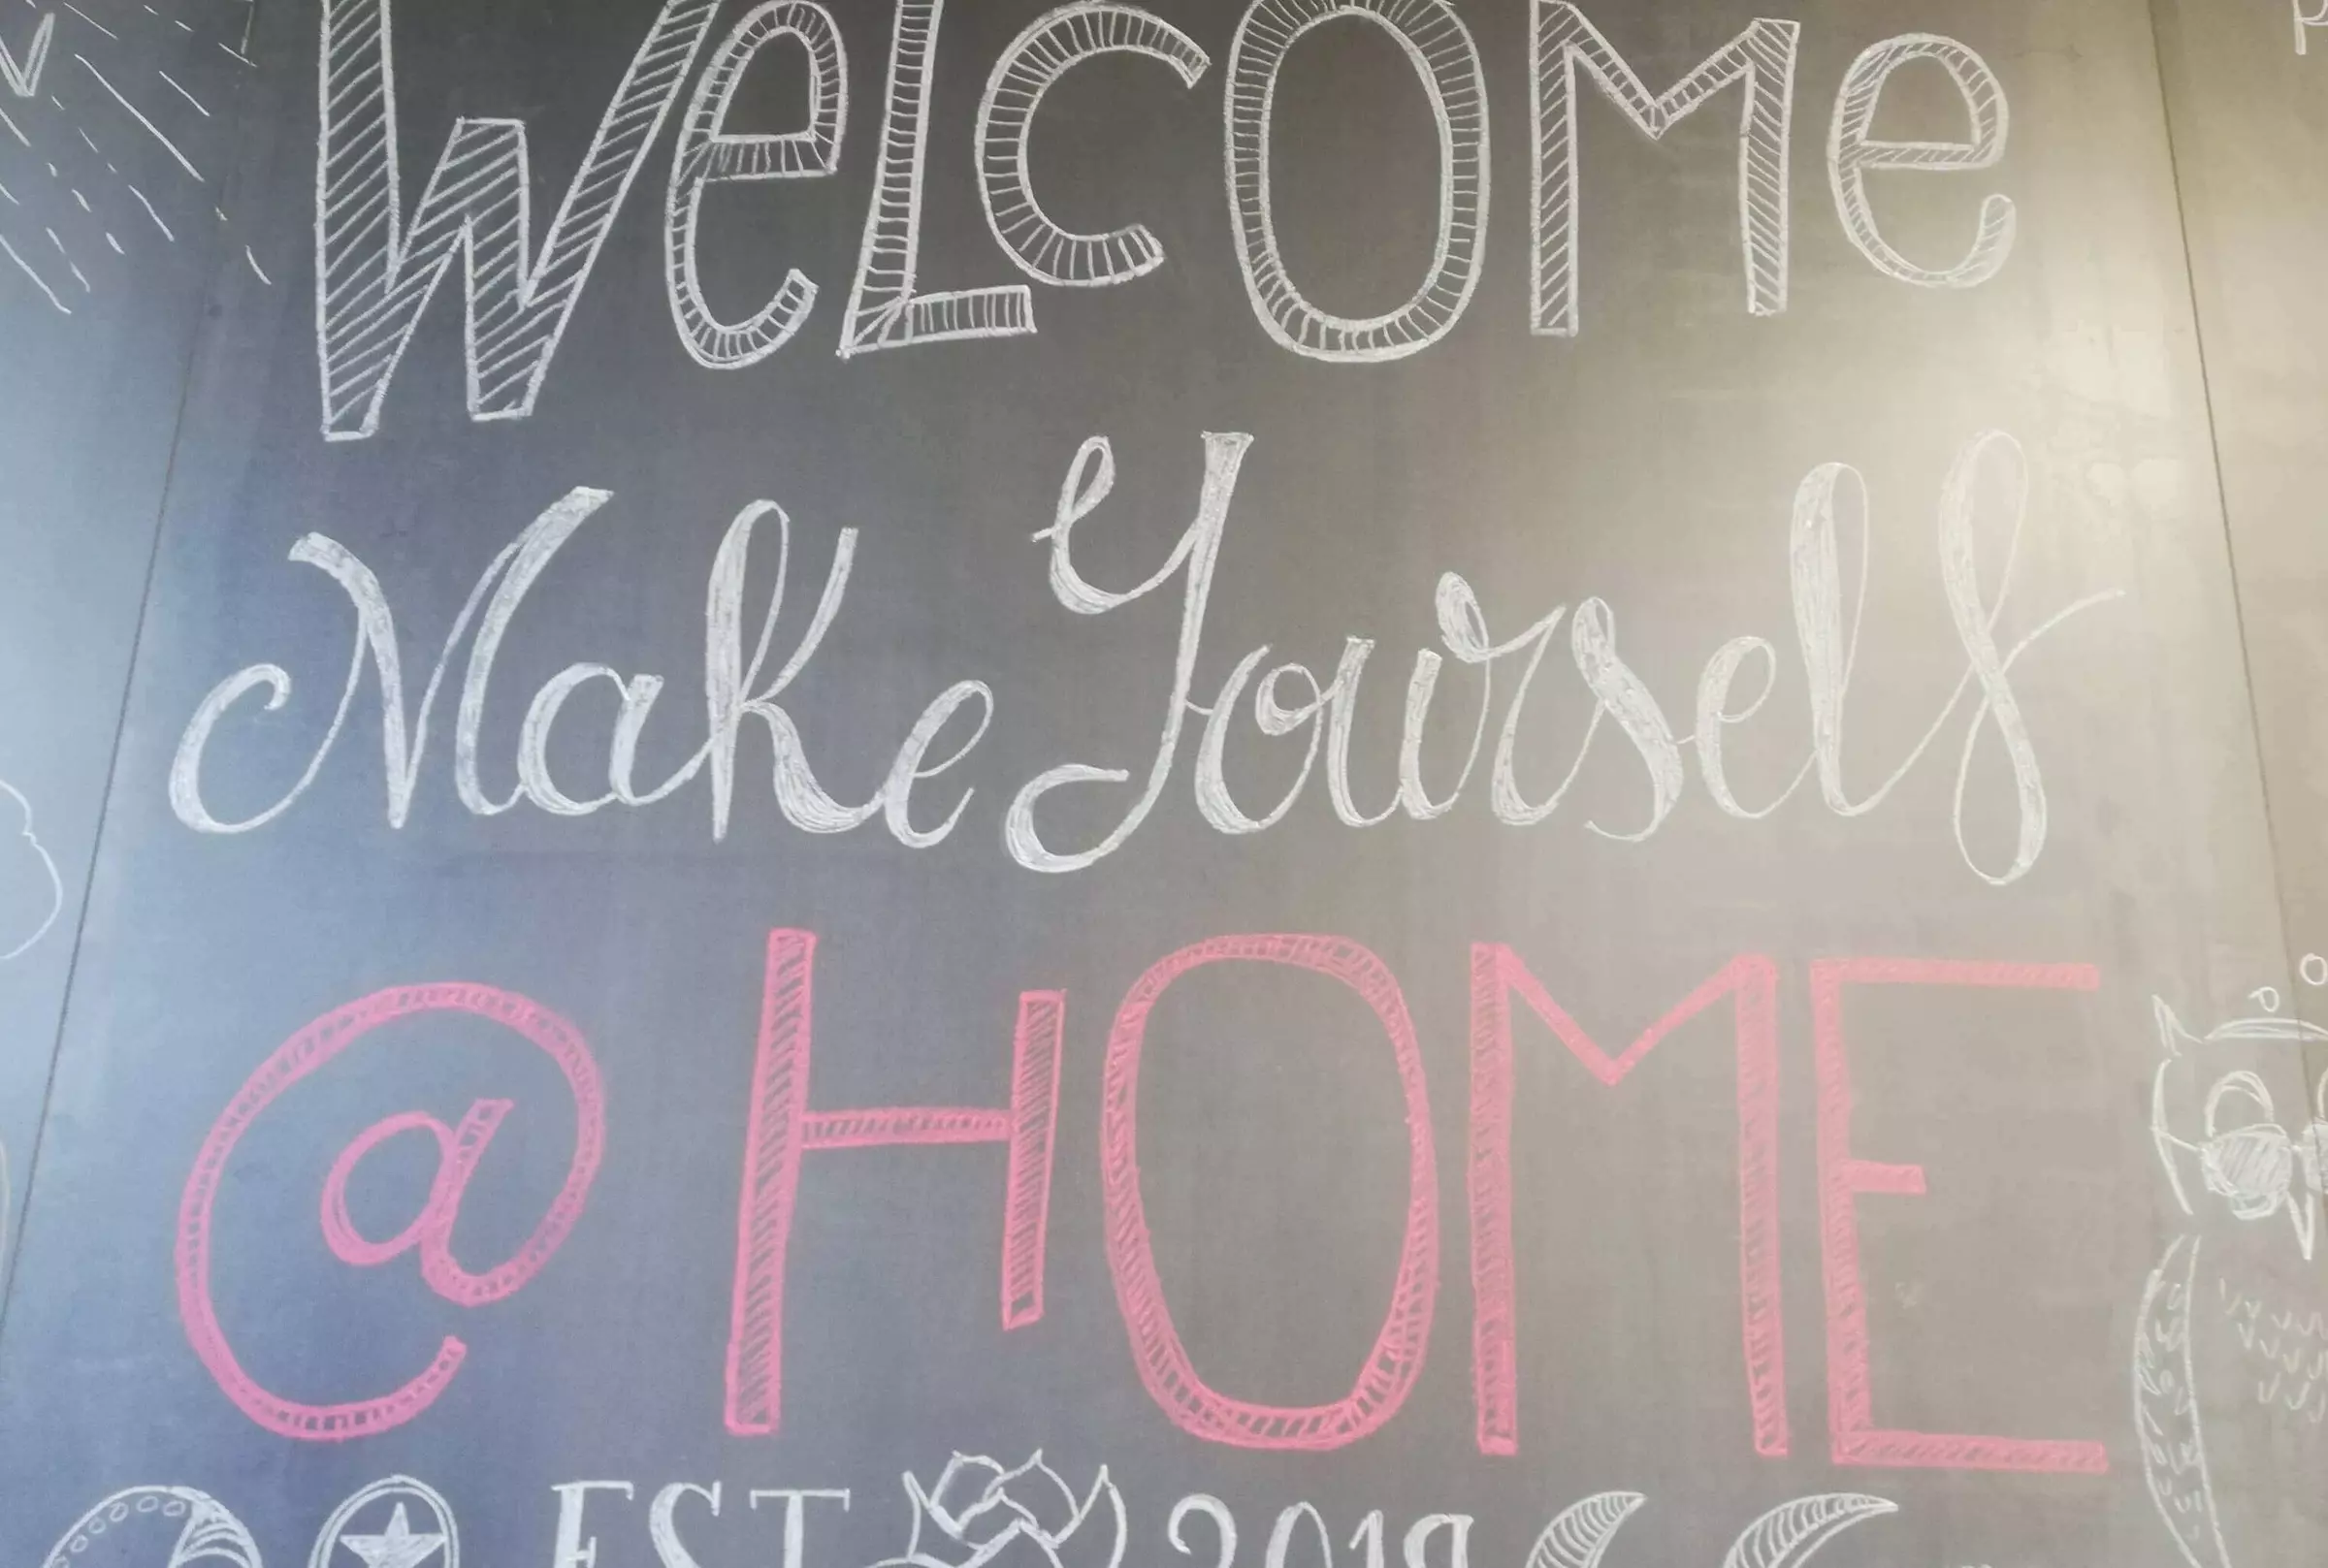 WeLcOMe
Make Yourself
@ HOME
EST 2019